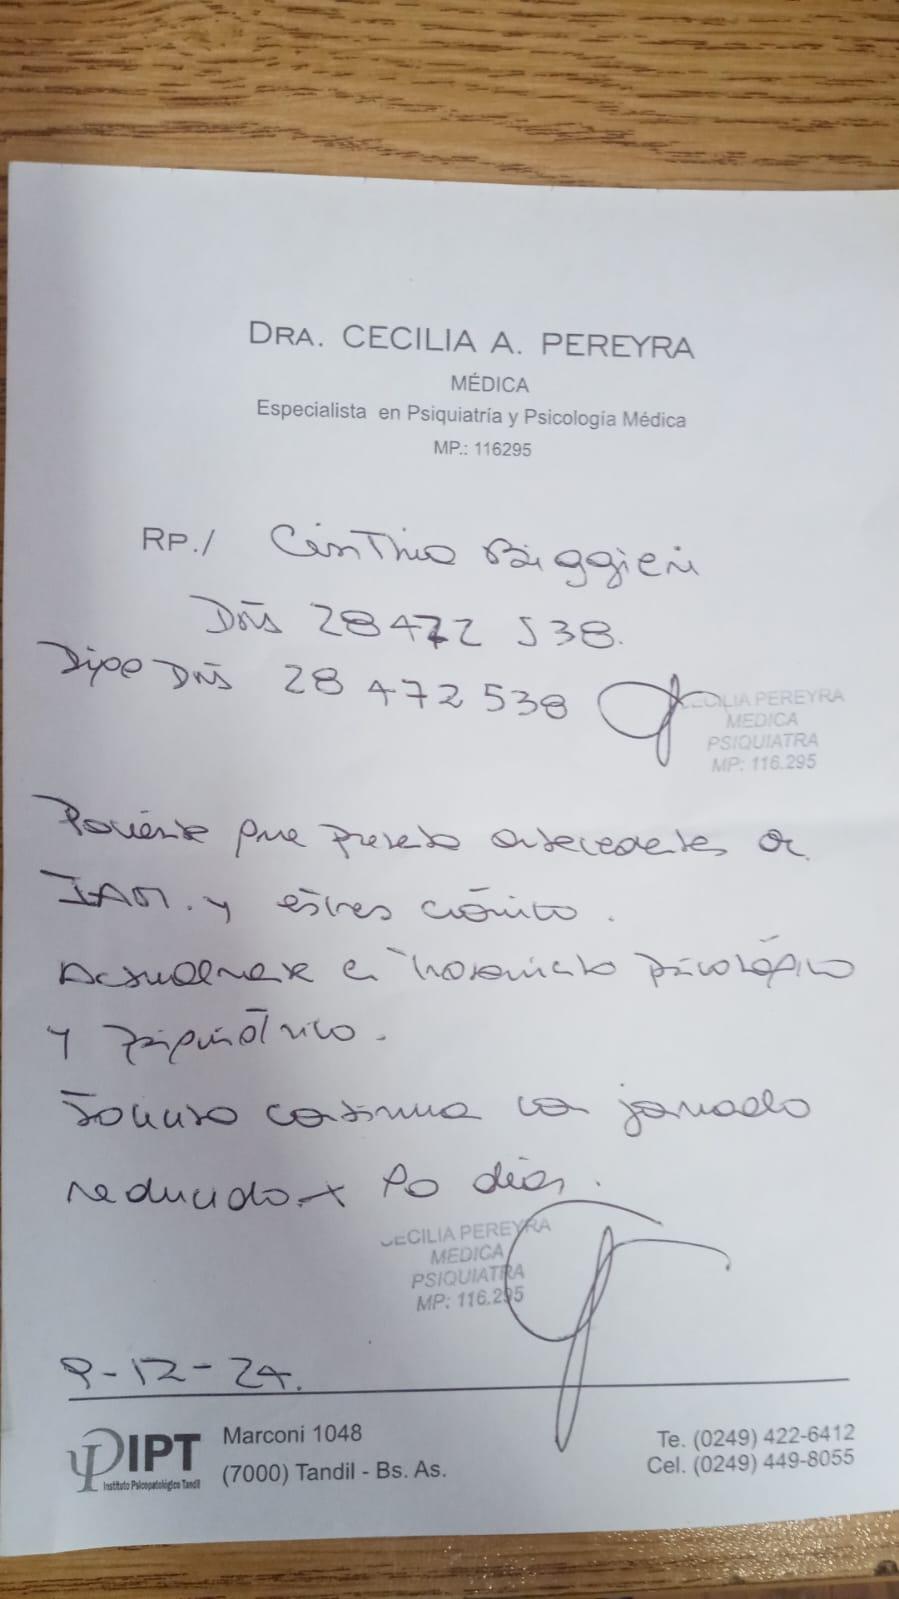 DRA. CECILIA A. PEREYRA
MÉDICA
Especialista en Psiquiatría y Psicología Médica
MP.: 116295
RP./ Cinthia Biggieri
DNI 28472 538.
Digo DNI 28 472 538
CECILIA PEREYRA
MEDICA
PSIQUIATRA
MP: 116.295
Paciente que presenta antecedentes de
IAM. y estres crónico.
Actualmente en tratamiento psicológico
y psiquiátrico.
Solicito continue con jornada
reducida x días.
CECILIA PEREYRA
MEDICA
PSIQUIATRA
MP: 116.295
9-12-24.
IPT
Instituto Psicopatológico Tandil
Marconi 1048
(7000) Tandil - Bs. As.
Te. (0249) 422-6412
Cel. (0249) 449-8055